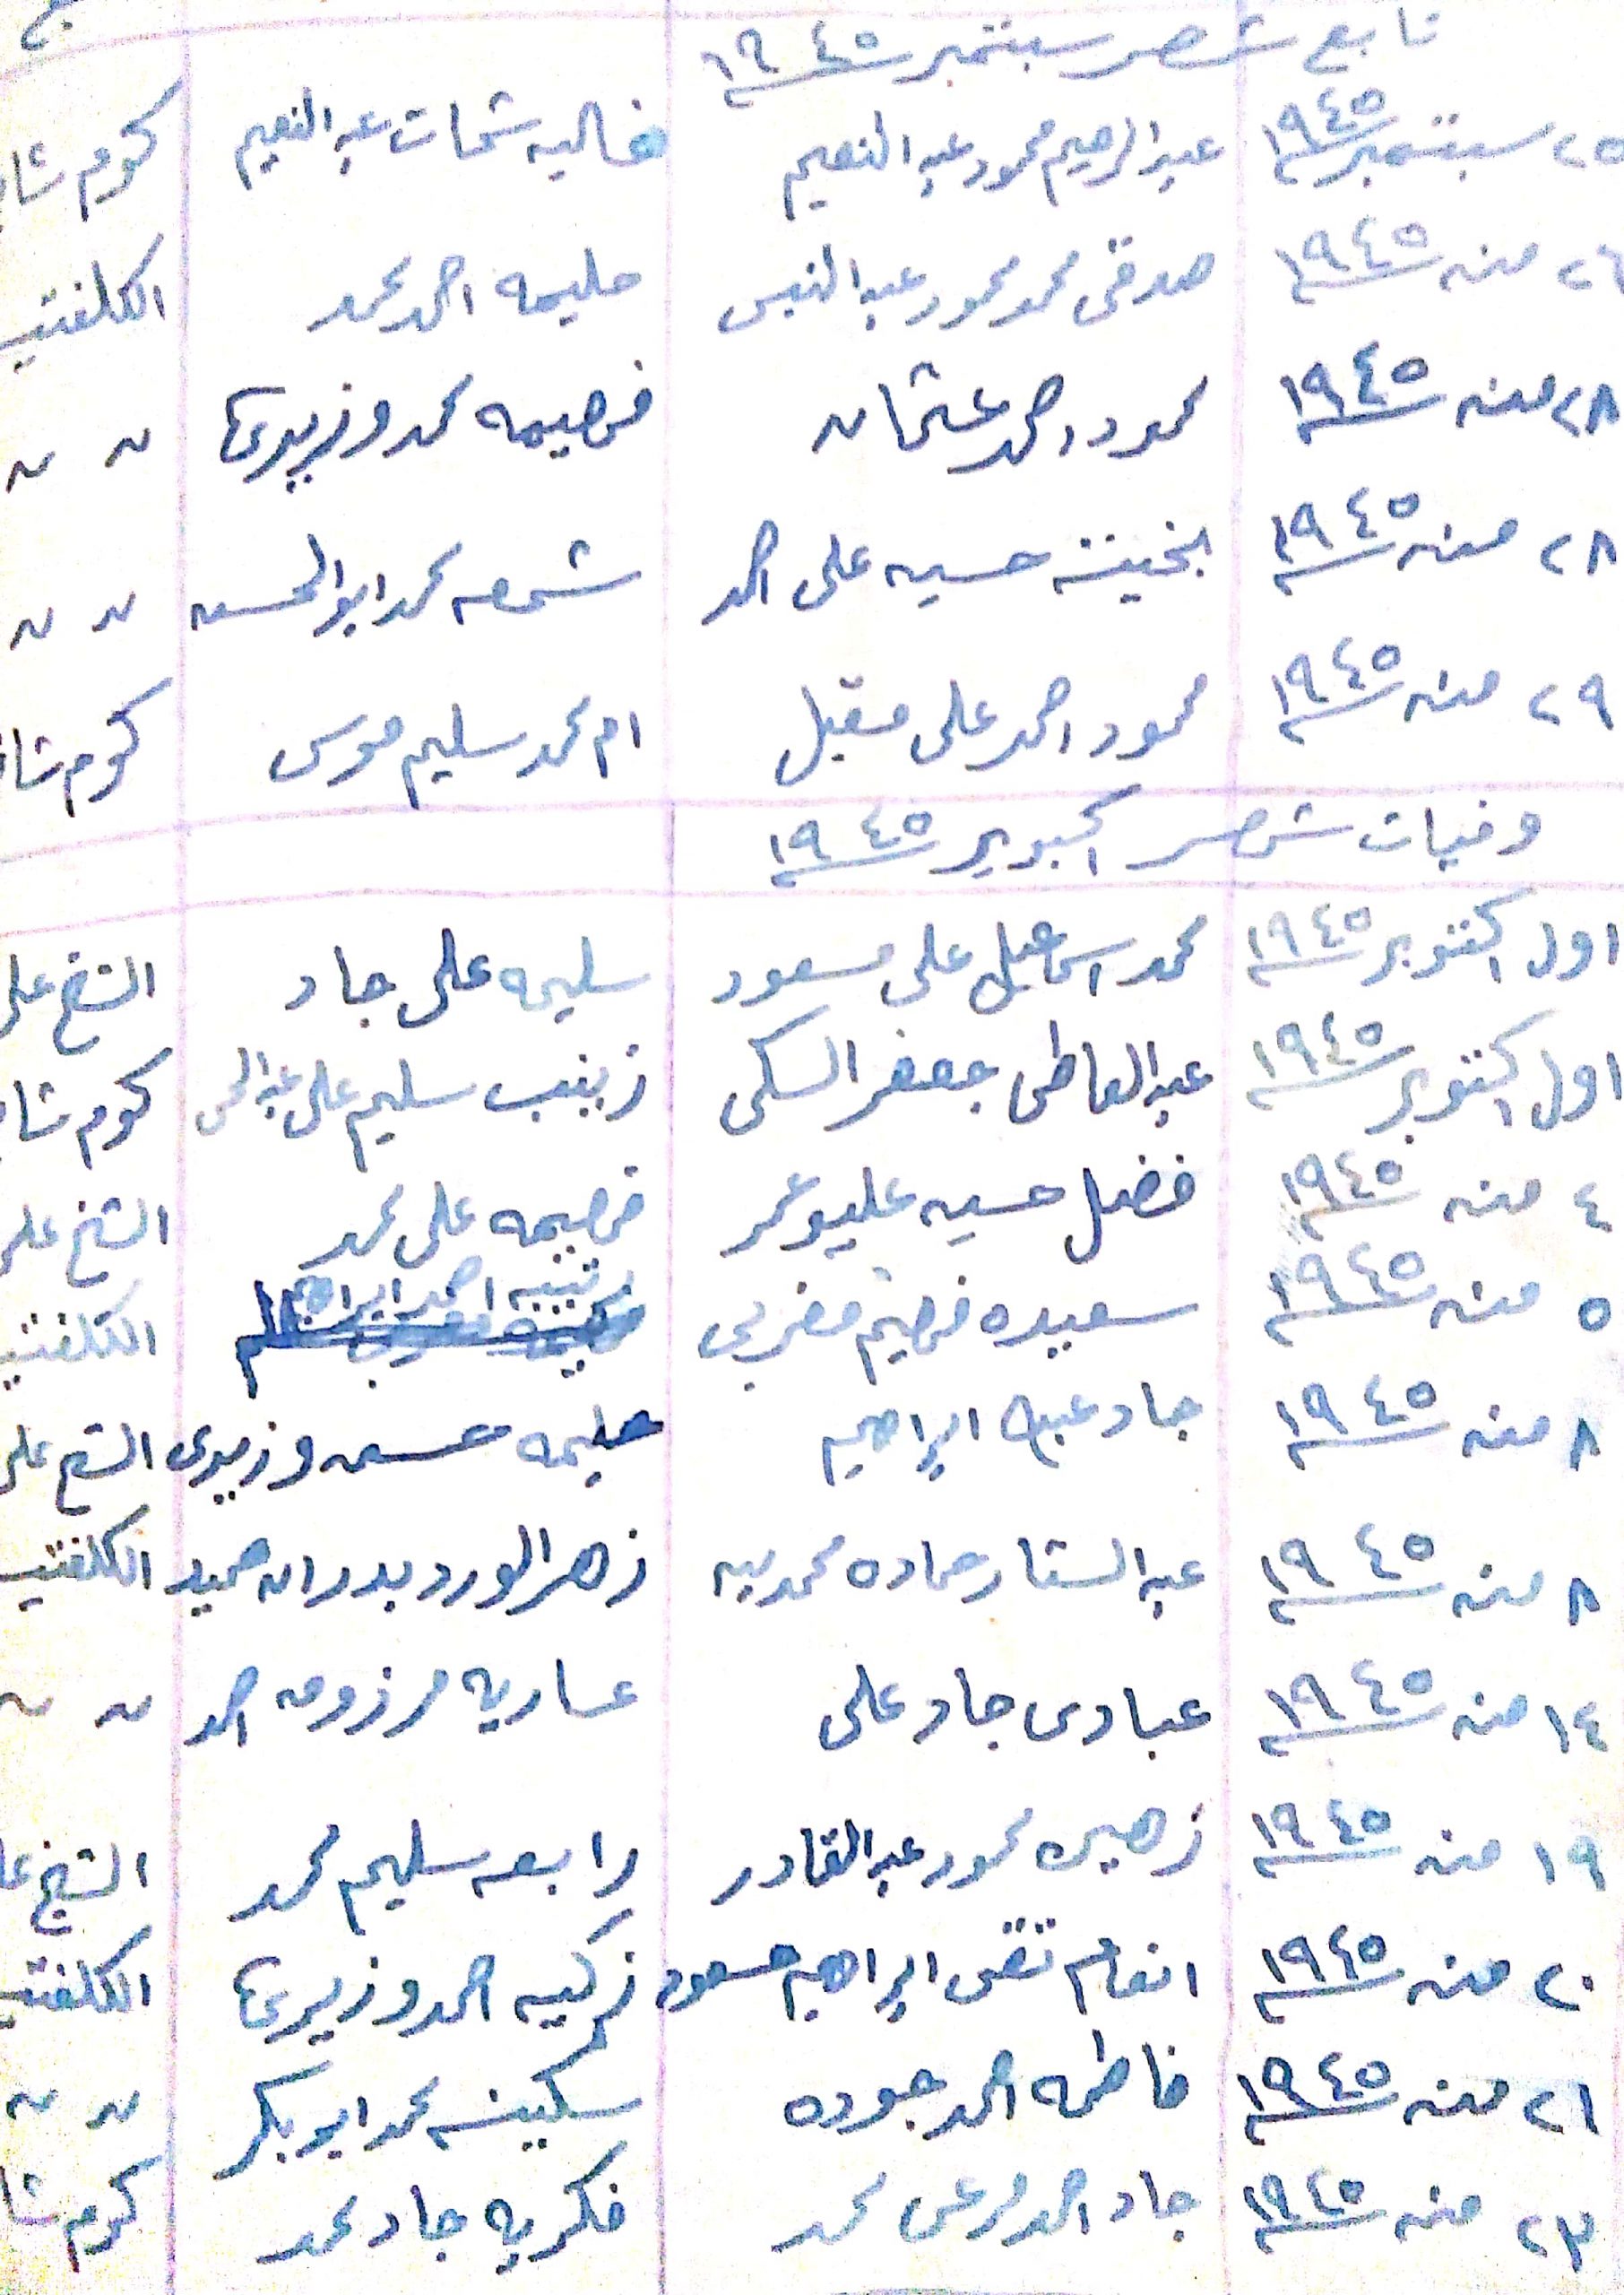 تابع شهر سبتمبر ١٩٤٥
٢٥ سبتمبر ١٩٤٥ عبد الرحيم محمود عبد النعيم غاليه شحات عبد النعيم كوم
٢٦ منه ١٩٤٥ صدقى محمد محمود عبد النبى حليمه احمد محمد الكلفتيه
٢٨ منه ١٩٤٥ محمود احمد عثمان فهيمه محمد وزيرى " "
٢٨ منه ١٩٤٥ بخيته حسين على احمد شمعه محمد ابو الحسن " "
٢٩ منه ١٩٤٥ محمود احمد على مقبل ام محمد سليم موسى كوم
وفيات شهر اكتوبر ١٩٤٥
اول اكتوبر ١٩٤٥ محمد اسماعيل على مسعود سليمه على جاد الشيخ على
اول اكتوبر ١٩٤٥ عبد العاطى جعفر السكى زينب سليم على كوم
٤ منه ١٩٤٥ فضل حسين عليو عمر فهيمه على محمد الشيخ على
٥ منه ١٩٤٥ سعيده فهيم مغربى احمد ابراهيم الكلفتيه
٨ منه ١٩٤٥ جاد ابراهيم حليمه حسن وزيرى الشيخ على
٨ منه ١٩٤٥ عبد الستار حماده محمدين زهر الورد بدران حميد الكلفتيه
١٤ منه ١٩٤٥ عبادى جاد على مرزوق احمد " "
١٩ منه ١٩٤٥ زهيره محمود عبد القادر رابعه سليم محمد الشيخ
٢٠ منه ١٩٤٥ انعام تقى ابراهيم مسعود زكيه احمد وزيرى الكلفتيه
٢١ منه ١٩٤٥ فاطمه احمد جوده سكينه محمد ابو بكر " "
٢٣ منه ١٩٤٥ جاد احمد محمد فكريه جاد محمد كوم